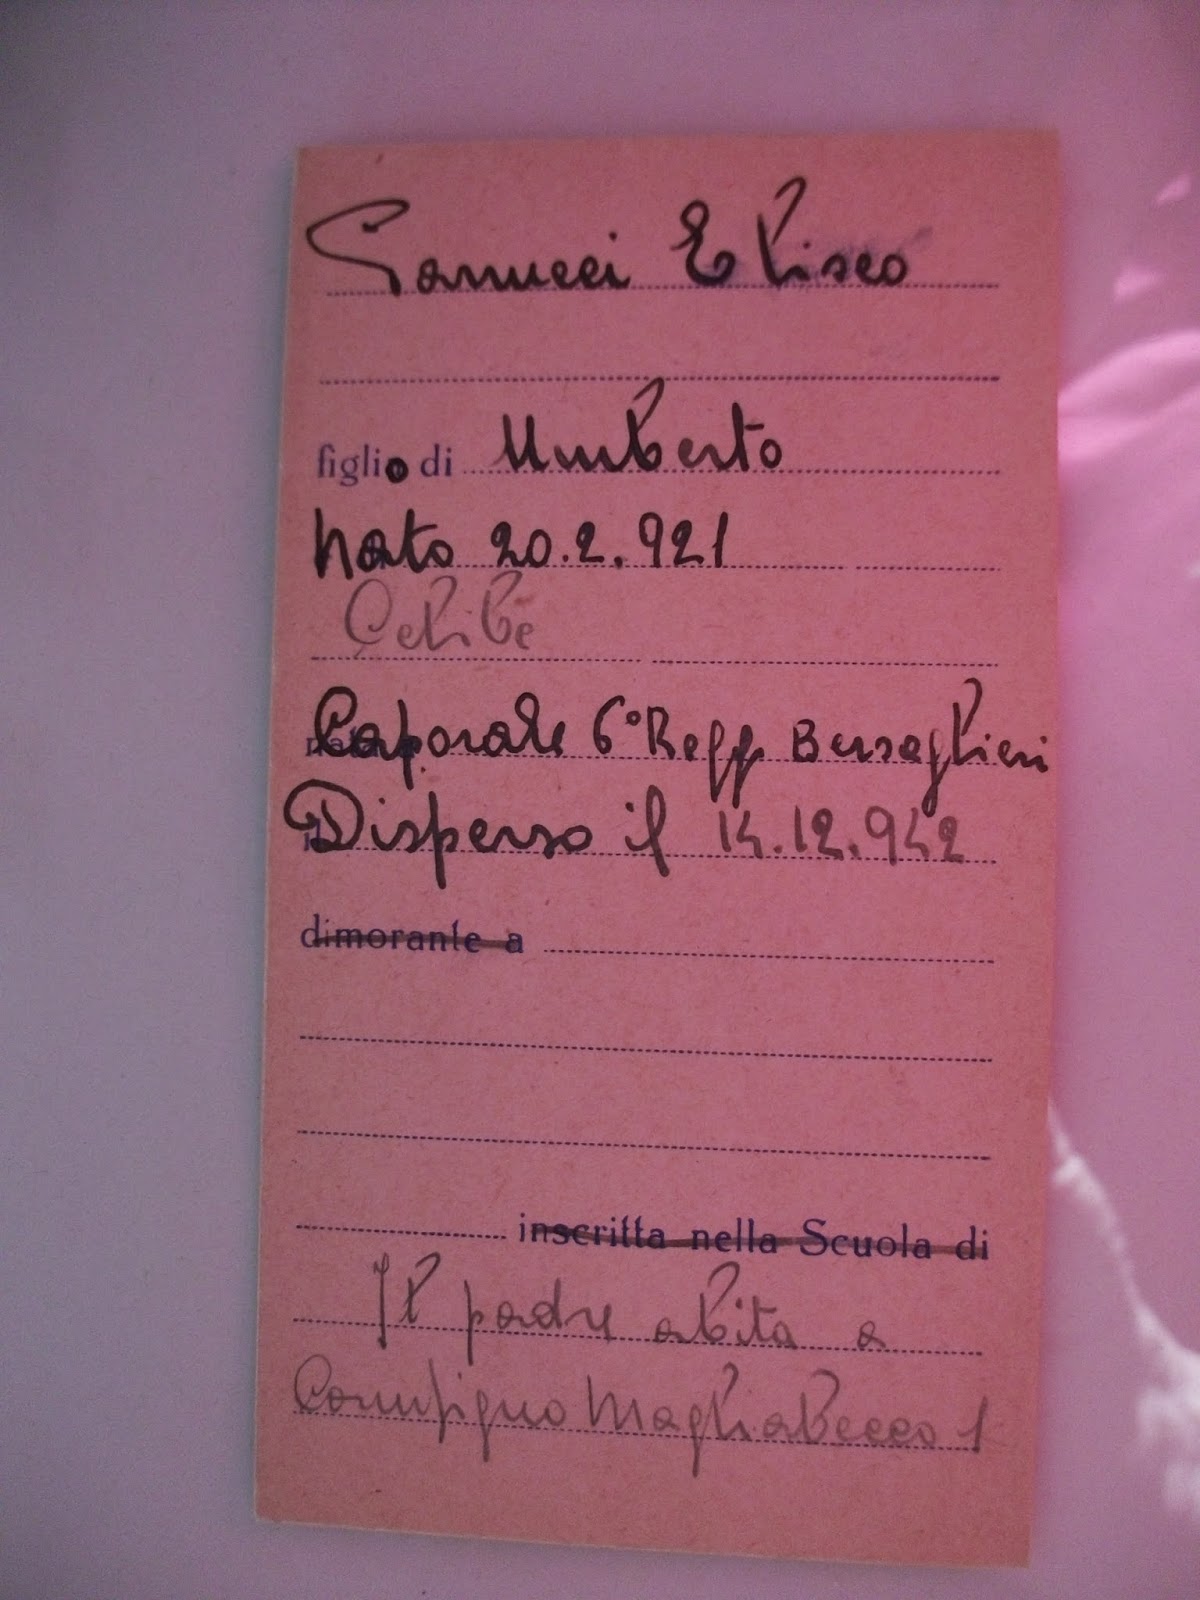 Eliseo
figlio di Umberto
Nato 20.2.921
Celibe
Caporale 6° Regg Bersaglieri
Disperso il 14.12.942
dimorante a
inscritta nella Scuola di
Il padre abita a
Magliabecco 1